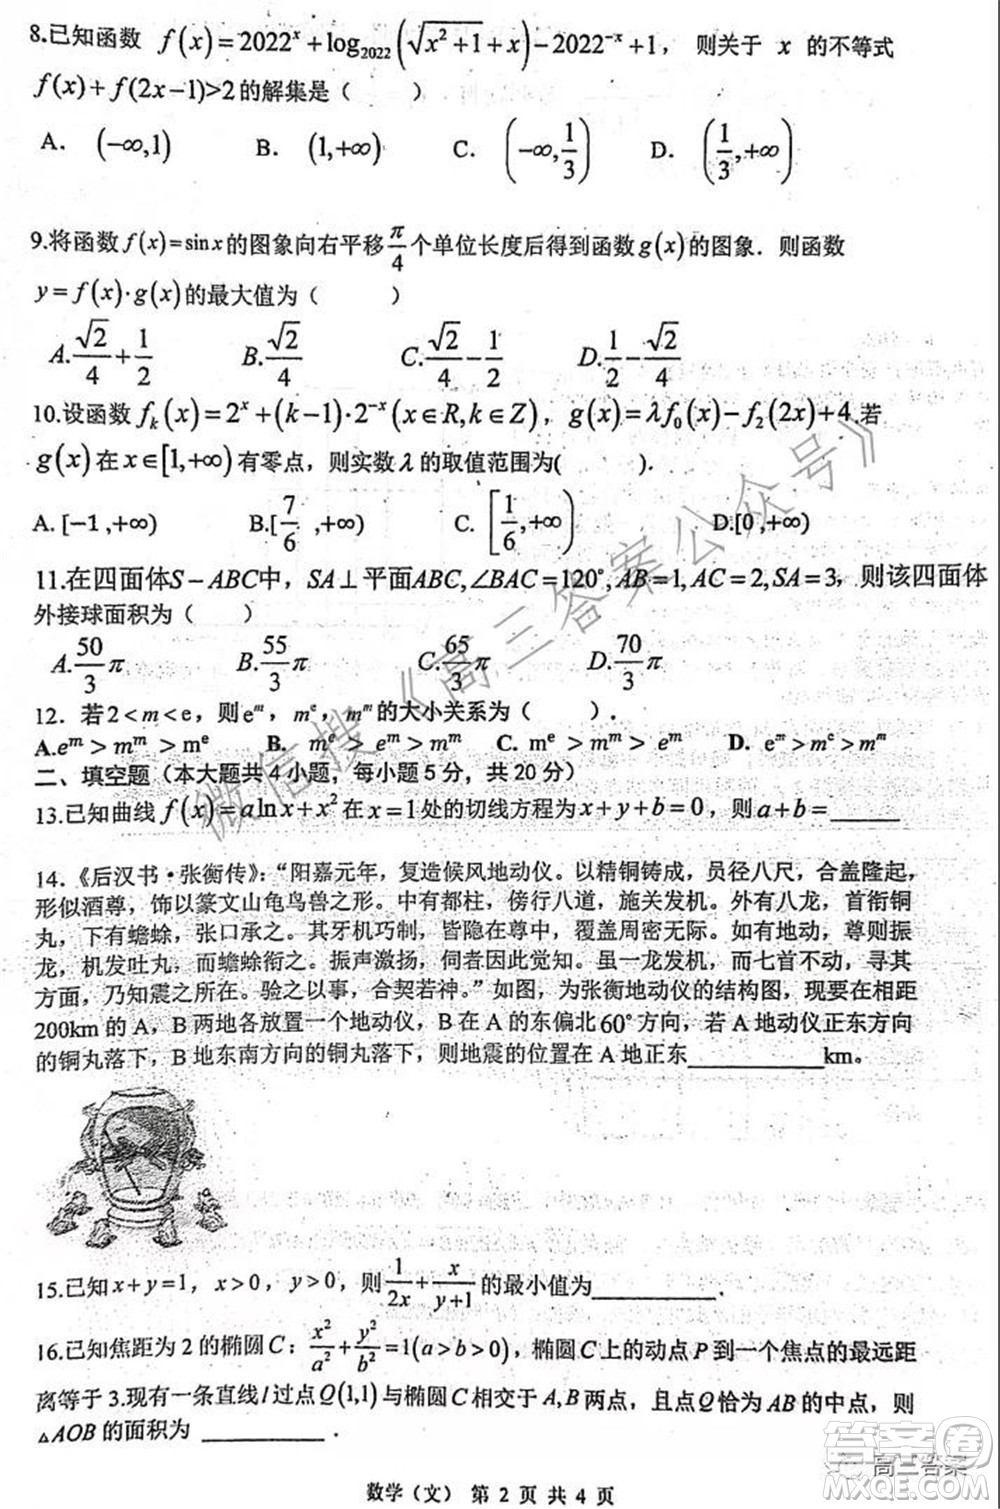 8.已知函数 f(x)=2022^x+log_2022(√(x²+1)+x)−2022^−x+1， 则关于 x 的不等式
f(x)+f(2x−1)>2的解集是（ ）
A. (−∞,1) B. (1,+∞) C. (−∞,1/3) D. (1/3,+∞)
9.将函数f(x)=sinx的图象向右平移π/4个单位长度后得到函数g(x)的图象．则函数
y=f(x)·g(x)的最大值为（ ）
A.√2/4+1/2 B.√2/4 C.√2/4−1/2 D.1/2−√2/4
10.设函数f_k(x)=2^x+(k−1)·2^−x(x∈R,k∈Z)，g(x)=λf_0(x)−f_2(2x)+4.若
g(x)在x∈[1,+∞)有零点，则实数λ的取值范围为( ).
A. [−1 ,+∞) B.[7/6 ,+∞) C. [1/6,+∞ D.[0 ,+∞)
11.在四面体S−ABC中，SA⊥平面ABC,∠BAC=120°,AB=1,AC=2,SA=3，则该四面体
外接球面积为（ ）
A.50/3 π B.55/3 π C.65/3 π D.70/3 π
12．若2<m<e，则e^m，m^e，m^m的大小关系为（ ）．
A.e^m>m^m>m^e B. m^e>e^m>m^m C. m^e>m^m>e^m D. e^m>m^e>m^m
二、填空题（本大题共4小题，每小题5分，共20分）
13.已知曲线f(x)=alnx+x²在x=1处的切线方程为x+y+b=0，则a+b=
14．《后汉书·张衡传》：“阳嘉元年，复造候风地动仪。以精铜铸成，员径八尺，合盖隆起，
形似酒尊，饰以篆文山龟鸟兽之形。中有都柱，傍行八道，施关发机。外有八龙，首衔铜
丸，下有蟾蜍，张口承之。其牙机巧制，皆隐在尊中，覆盖周密无际。如有地动，尊则振
龙，机发吐丸，而蟾蜍衔之。振声激扬，伺者因此觉知。虽一龙发机，而七首不动，寻其
方面，乃知震之所在。验之以事，合契若神。”如图，为张衡地动仪的结构图，现要在相距
200km的A，B两地各放置一个地动仪，B在A的东偏北60°方向，若A地动仪正东方向
的铜丸落下，B地东南方向的铜丸落下，则地震的位置在A地正东 km。
15.已知x+y=1，x>0，y>0，则1/2x+x/(y+1)的最小值为 .
16.已知焦距为2的椭圆C：x²/a²+y²/b²=1(a>b>0)，椭圆C上的动点P到一个焦点的最远距
离等于3.现有一条直线l过点Q(1,1)与椭圆C相交于A,B两点，且点Q恰为AB的中点，则
△AOB的面积为 .
数学（文） 第2页共4页
微信搜《高三答案公众号》
高三答案
答案圈
MXQE.COM